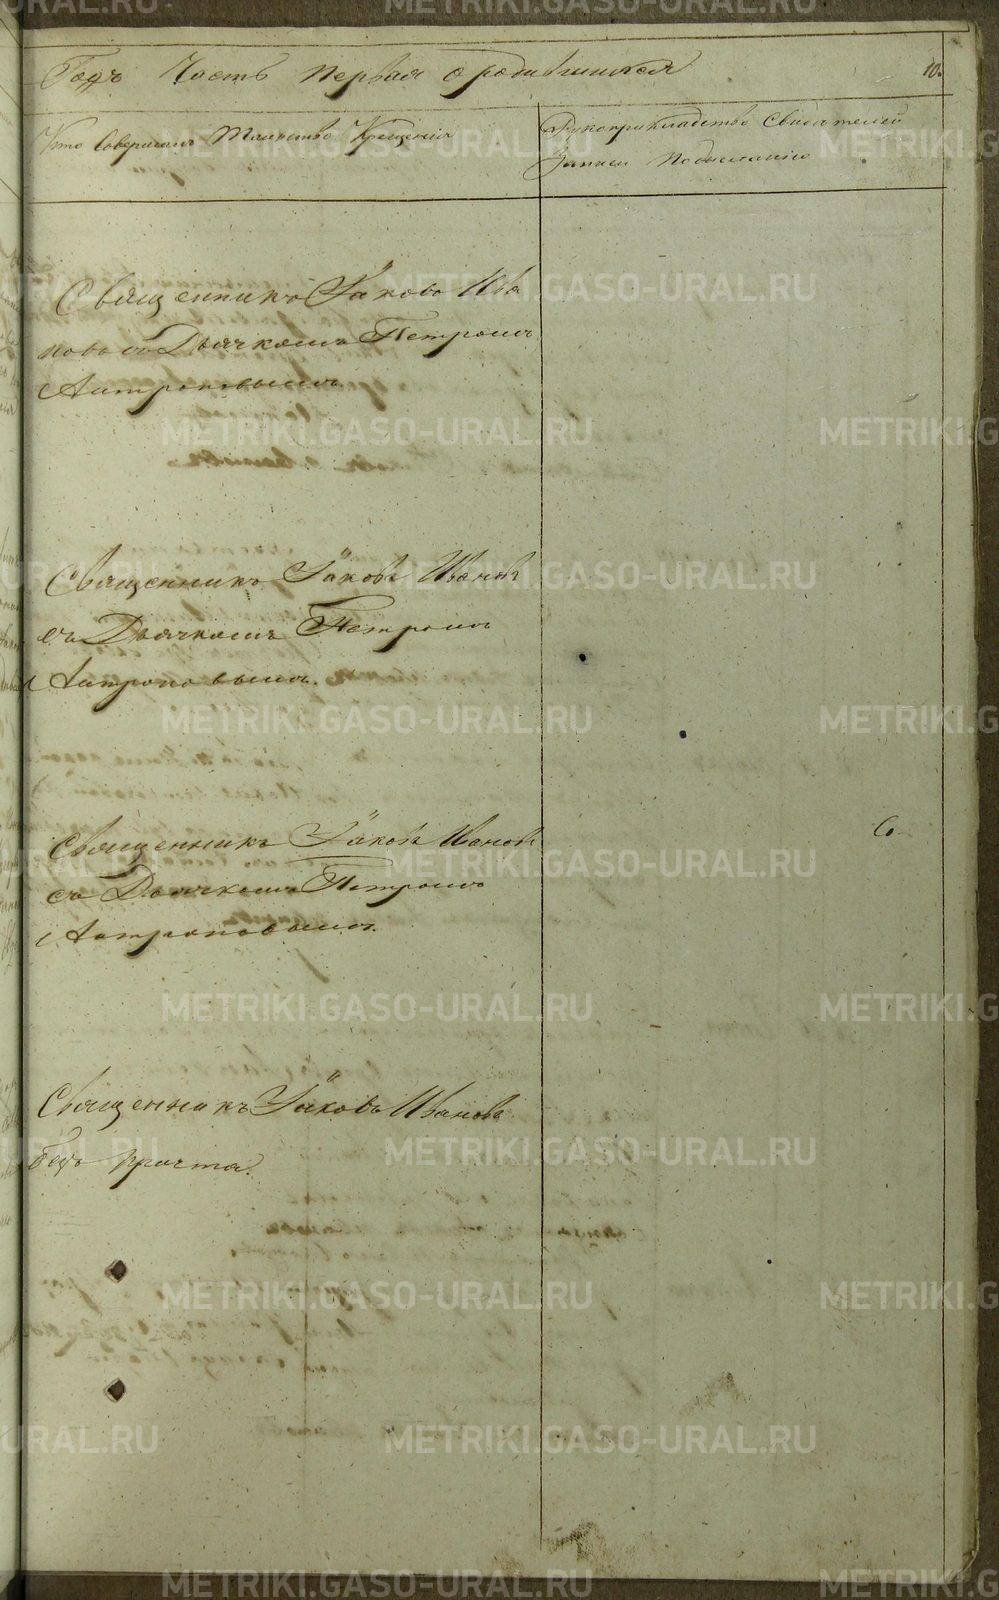 Годъ Часть первая о родившихся 10.
Кто Совершалъ Таинство Крещенія
Рукоприкладство Свидѣтелей
Записи по желанію
Священникъ Іаковъ Ива
новъ съ Дьячкомъ Петромъ
Антроповымъ
Священникъ Іаковъ Ивановъ
съ Дьячкомъ Петромъ
Антроповымъ.
Священникъ Іаковъ Ивановъ
съ Дьячкомъ Петромъ
Антроповымъ.
Священникъ Іаковъ Ивановъ
безъ причта.
METRIKI.GASO-URAL.RU